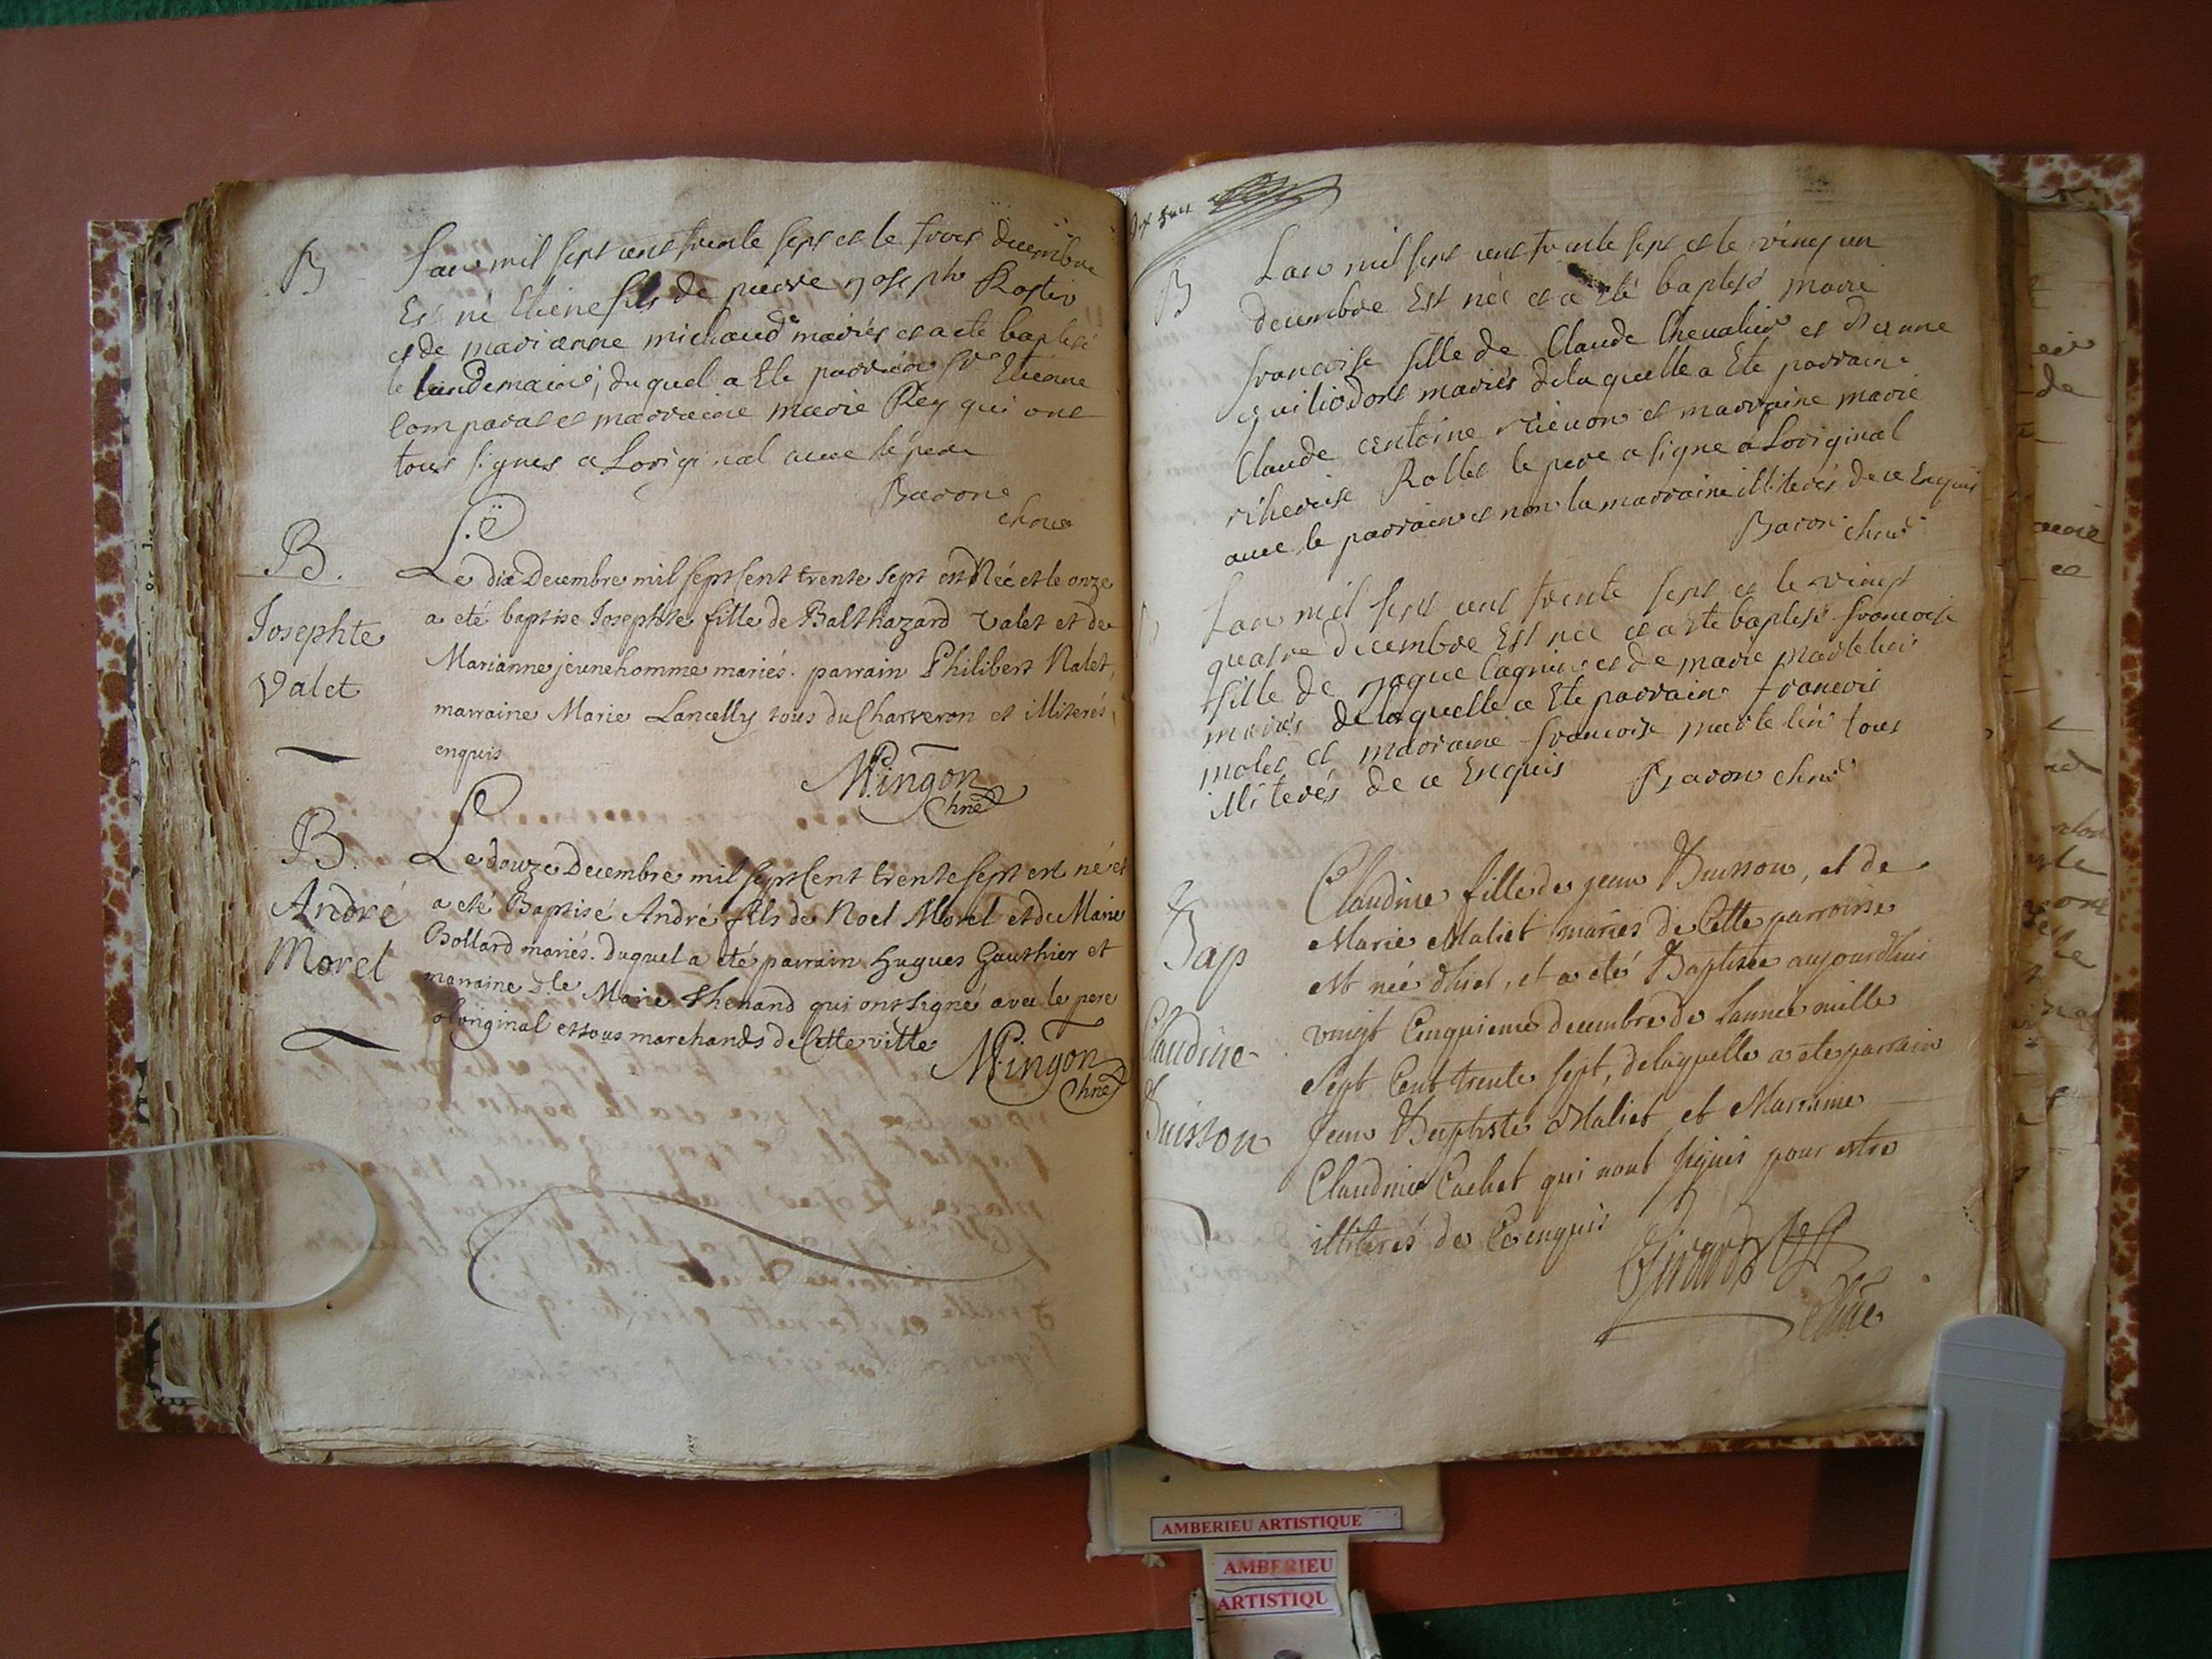 B
Lan mil sept cent trente sept et le trois decembre
Est né Etiene fils de pierre joseph Rostin
et de marianne michaud mariés et a ete baptisé
le landemain, duquel a Ete parrain Sr Etienne
Comparat et marraine marie Rey qui ont
tous signes a Loriginal avec le pere
Baron
chne
B.
Josephte
Valet
Le dix Decembre mil sept Cent trente sept est Née et le onze
a eté baptisé Josephte fille de Balthazard Valet et de
Marianne jeunehomme mariés. parrain Philibert Nalet,
marraine Marie Lancelly tous du Charveron et illiterés
enquis
Mingon
Chne
B.
André
Morel
Le douze Decembre mil sept Cent trente sept est né et
a eté Baptisé André fils de Noel Morel et de Marie
Bollard mariés. Duquel a eté parrain Hugues Gauthier et
marraine Dlle Marie Thenand qui ont signé avec le pere
a loriginal et tous marchands de Cette ville
Mingon
Chne
B
Lan mil sept cent trente sept et le vingt un
decembre Est née et a Eté baptisé marie
francoise fille de Claude Chevalier et
mariés de laquelle a Ete parrain
Claude antoine et marraine marie
Rollet le pere a signe a Loriginal
avec le parrain et non la marraine illiterés de ce Enquis
Baron chne
Lan mil sept cent trente sept et le vingt
quatre decembre Est née et a Ete baptisé francoise
fille de jaque Cagnin et de marie martelin
mariés de laquelle a Ete parrain francois
molet et marraine francoise martelin tous
illiterés de ce Enquis Baron chne
Bap
Claudine
Buisson
Claudine fille de jean Buisson, et de
Marie Maliet mariés de Cette parroisse
est née d'hier, et a eté Baptisée aujourdhui
vingt Cinquieme decembre de Lannée mille
Sept Cent trente sept, de laquelle a ete parrain
Jean Baptiste Maliet et Marraine
Claudine Cachet qui nont signés pour estre
illiterés de Ce enquis
Girard
chne
AMBERIEU ARTISTIQUE
AMBERIEU
ARTISTIQU